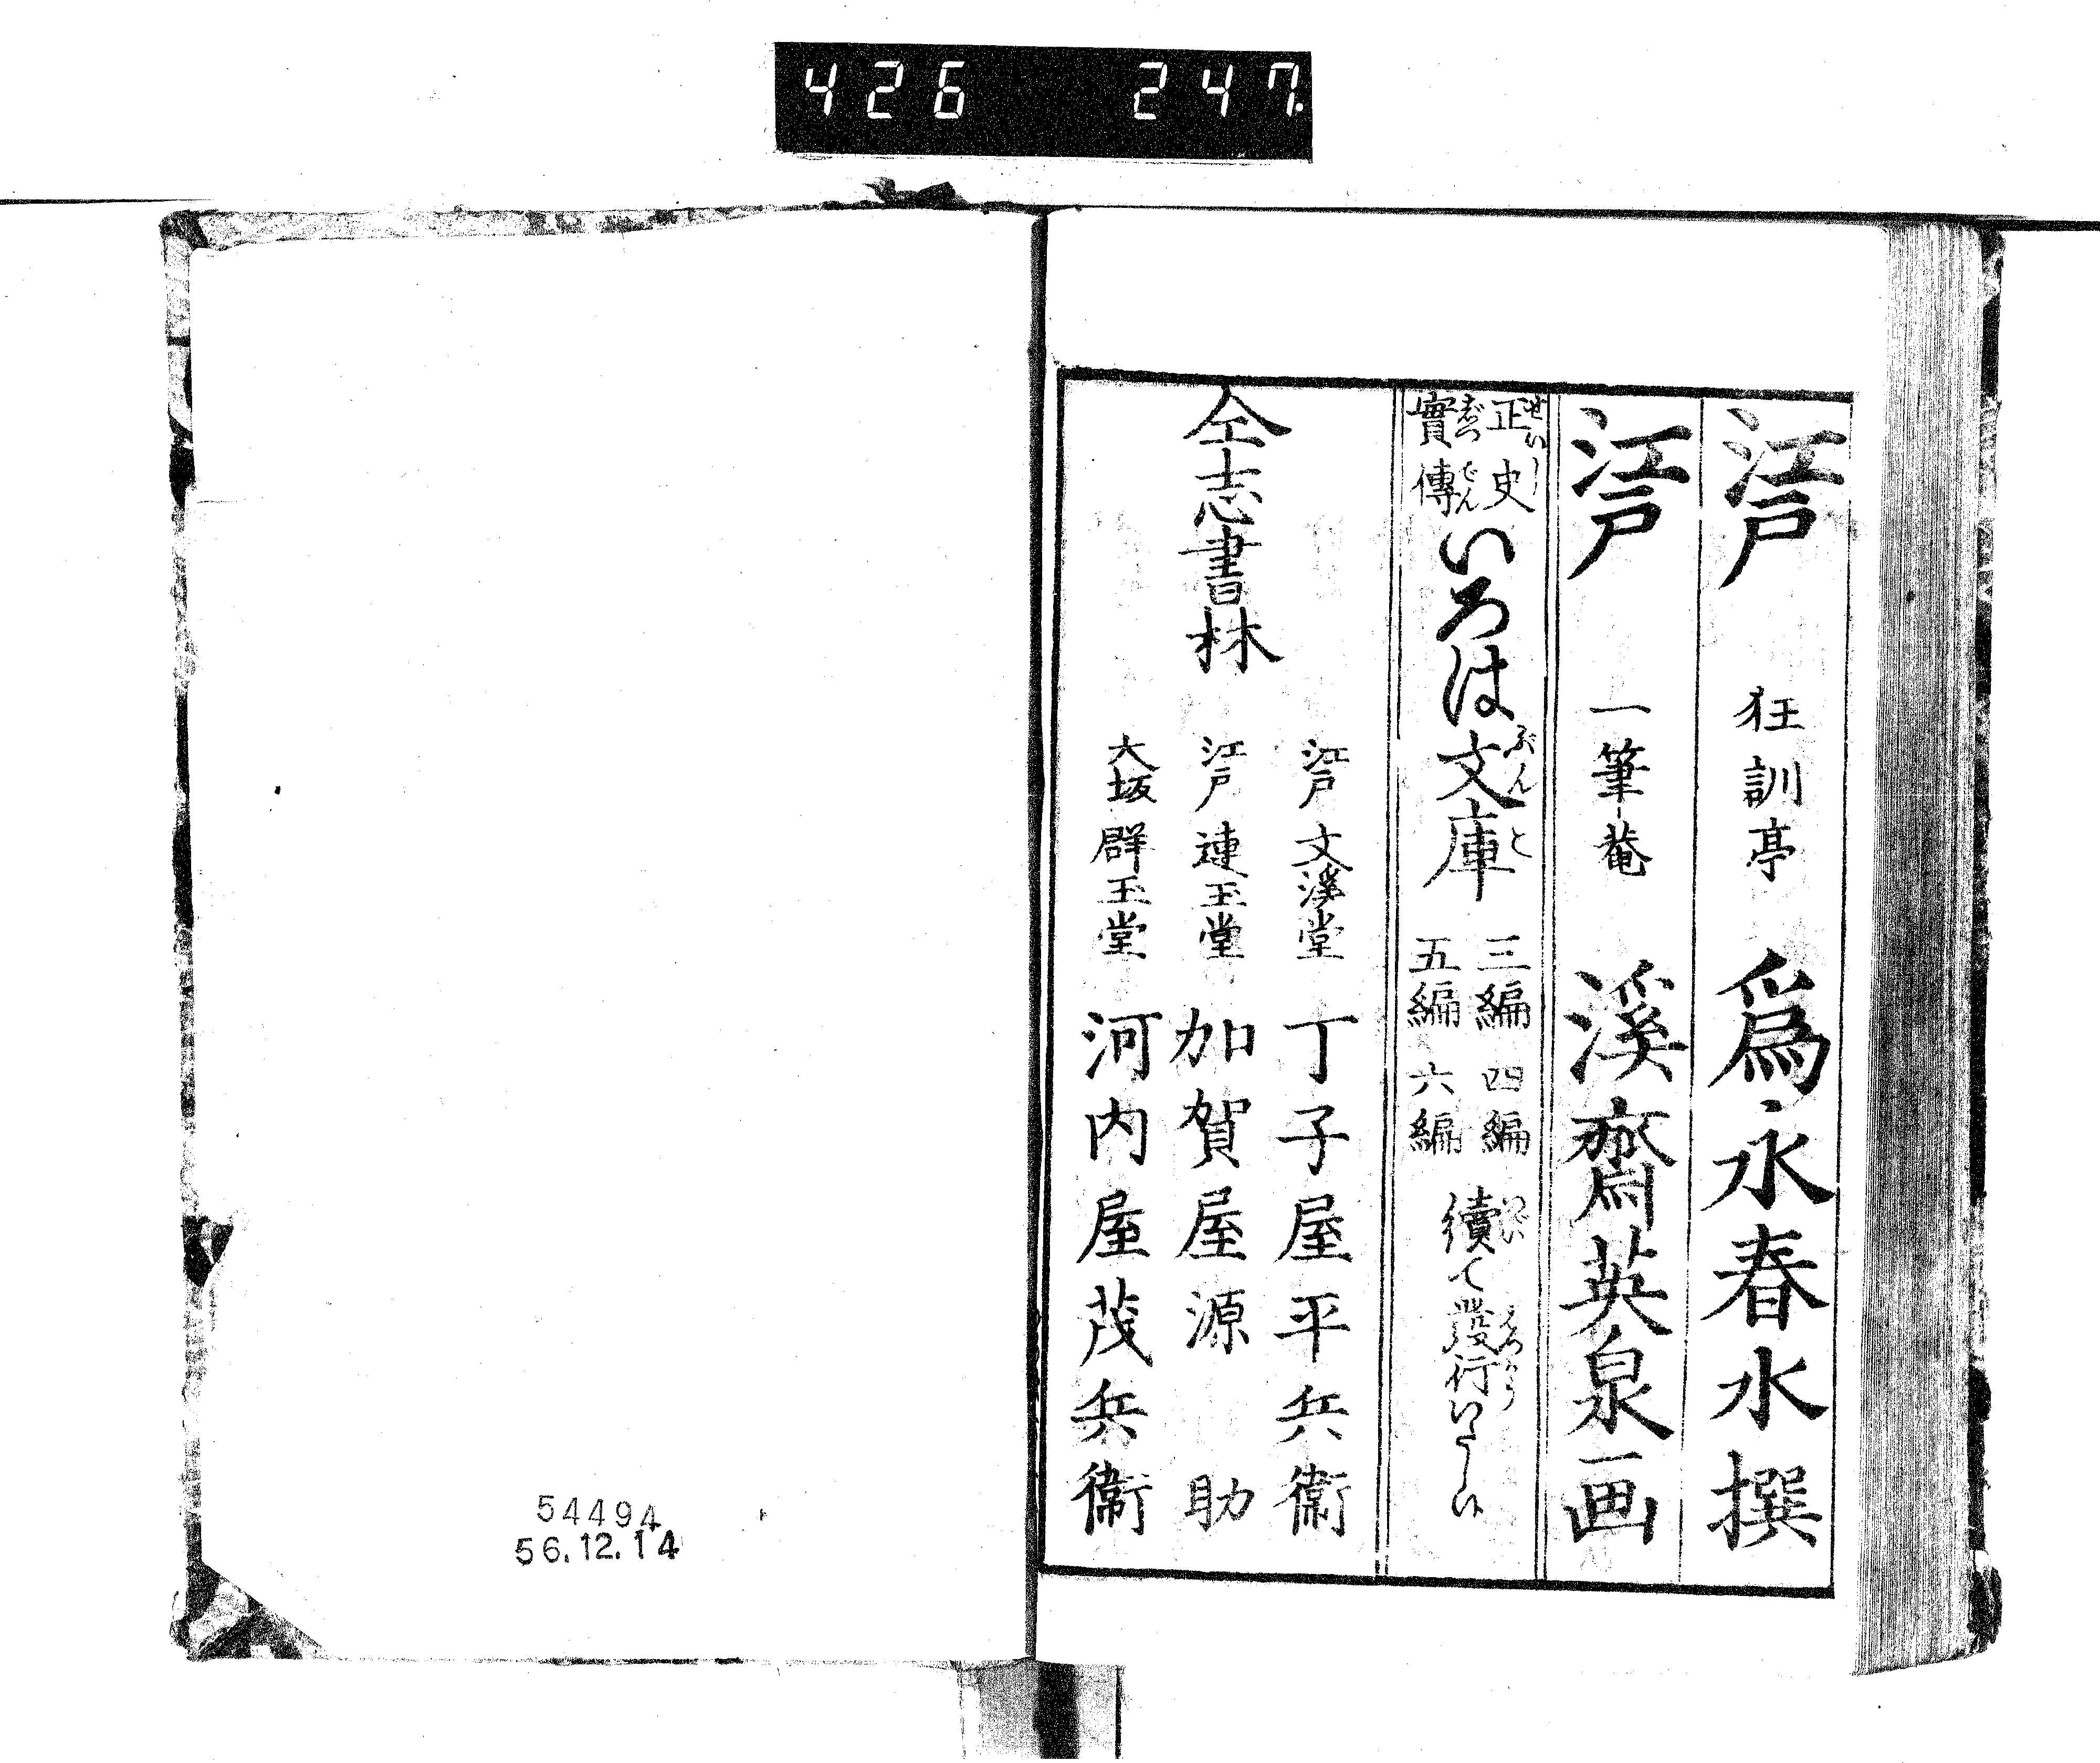 426 247.
江戸 狂訓亭 爲永春水撰
江戸 一筆菴 溪齋英泉画
正史 せいし
實傳 じつでん
いろは文庫 ぶんこ
三編 四編
五編 六編
續て發行いたし候
仝志書林
江戸 文溪堂 丁子屋平兵衞
江戸 連玉堂 加賀屋源助
大坂 群玉堂 河内屋茂兵衞
54494
56.12.14